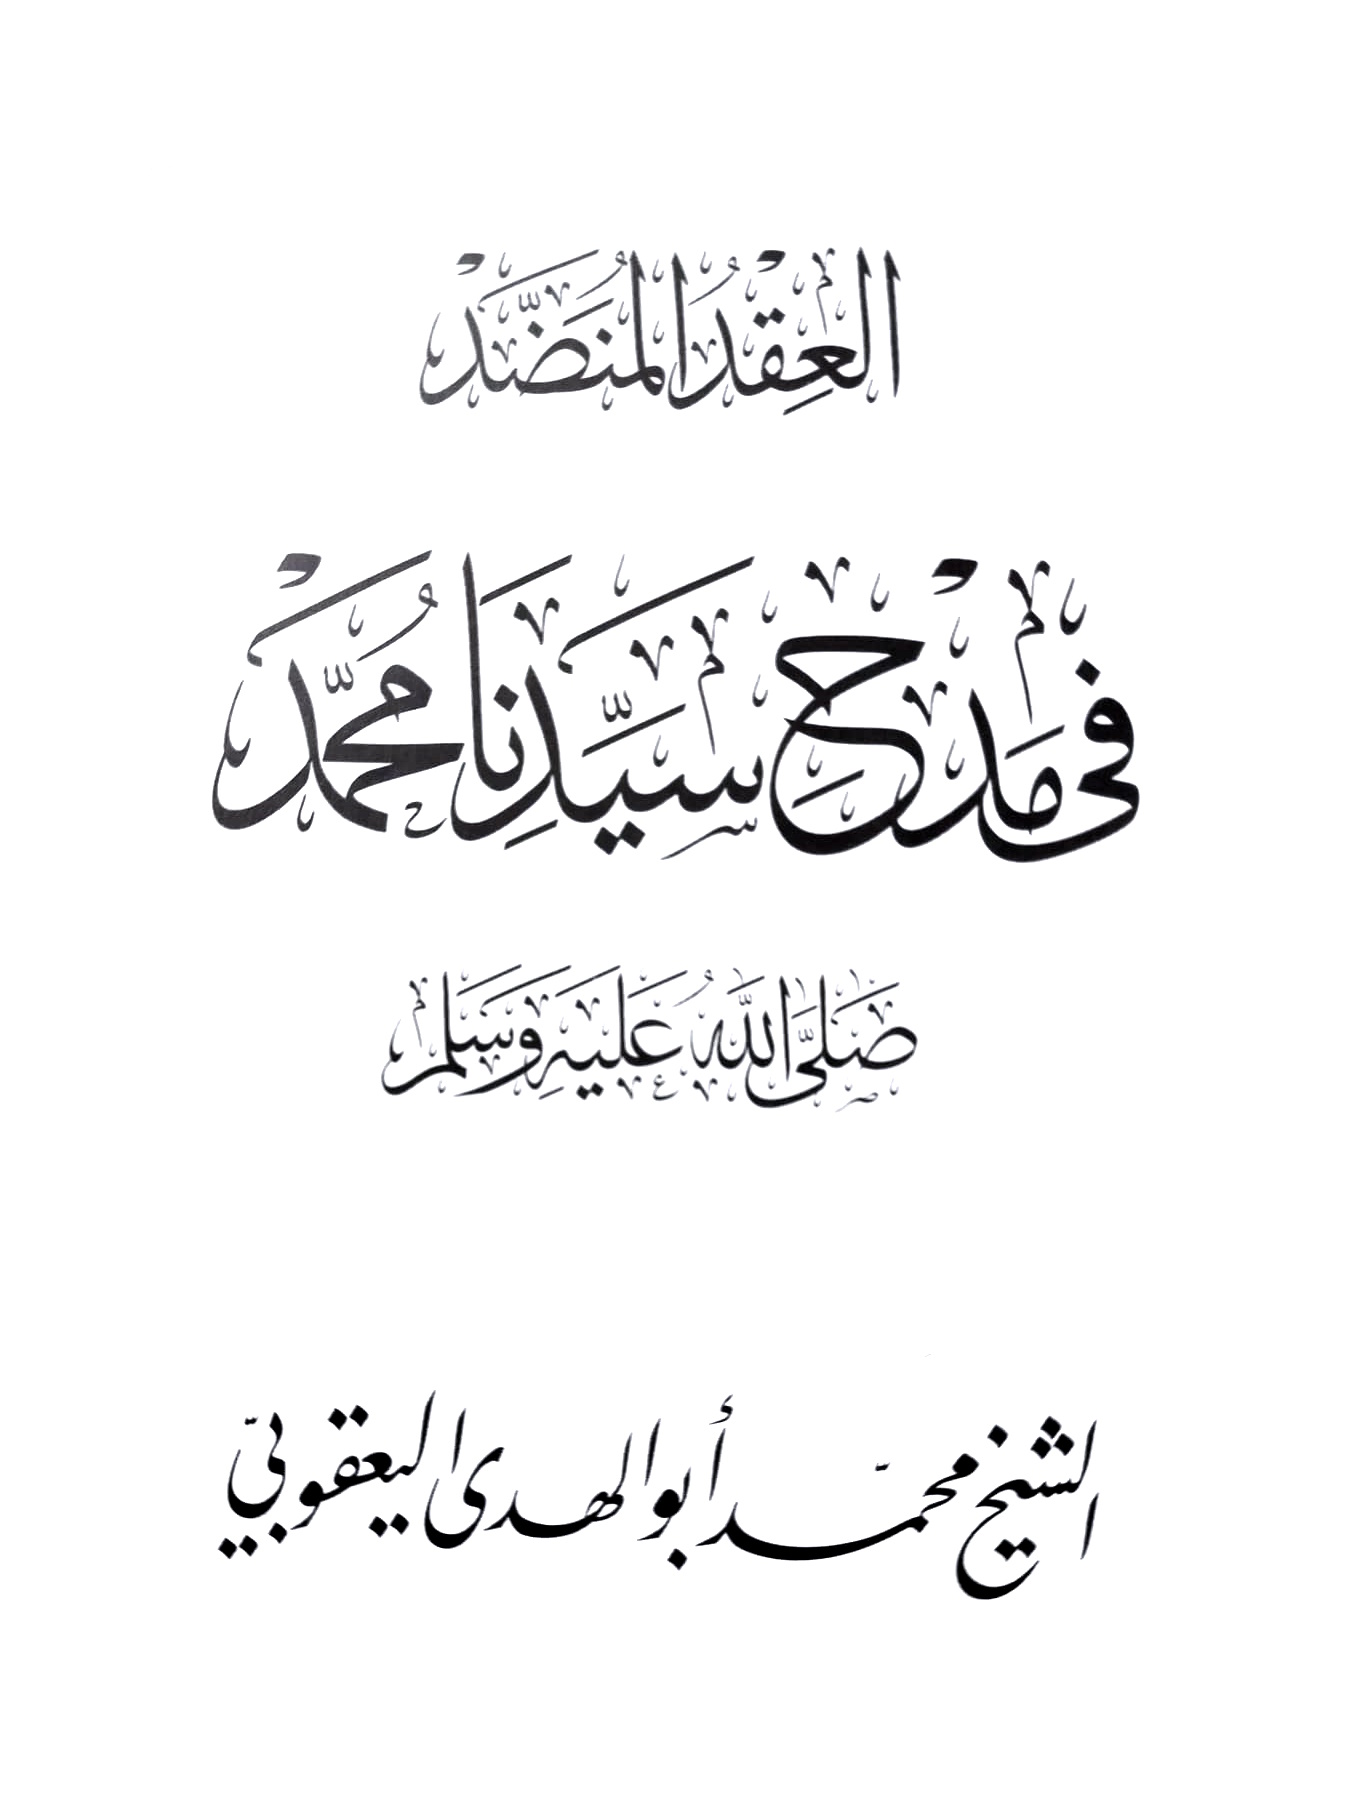 العِقْدُ المُنَضَّدْ
في مَدْحِ سَيِّدِنَا مُحَمَّدْ
صَلَّى اللَّهُ عَلَيْهِ وَسَلَّمْ
الشيخ محمّد أبو الهدى اليعقوبيّ